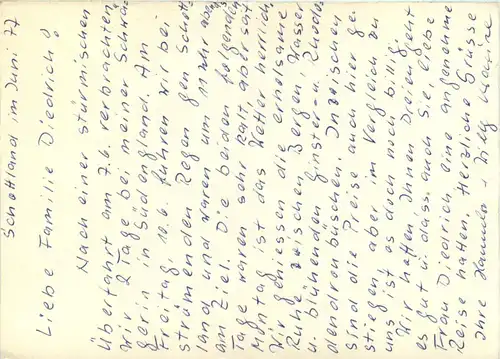 Schottland im Juni 77
Liebe Familie Diedrich!
Nach einer stürmischen
Überfahrt am 7.6. verbrachten
wir 2 Tage bei meiner Schwä-
gerin in Südengland. Am
Freitag, 10.6. fuhren wir bei
strömenden Regen gen Schott-
land und waren um 11 Uhr
am Ziel. Die beiden folgenden
Tage waren sehr kalt, aber seit
Montag ist das Wetter herrlich.
Wir geniessen die erholsame
Ruhe zwischen Bergen, Wasser
u. blühenden Ginster- u. Rhodo-
dendronbüschen. Inzwischen
sind die Preise auch hier ge-
stiegen, aber im Vergleich zu
uns ist es doch noch billig.
Wir hoffen Ihnen Dreien geht
es gut u. dass auch Sie, liebe
Frau Diedrich eine angenehme
Reise hatten. Herzliche Grüsse
Ihre Hannelor + Willy